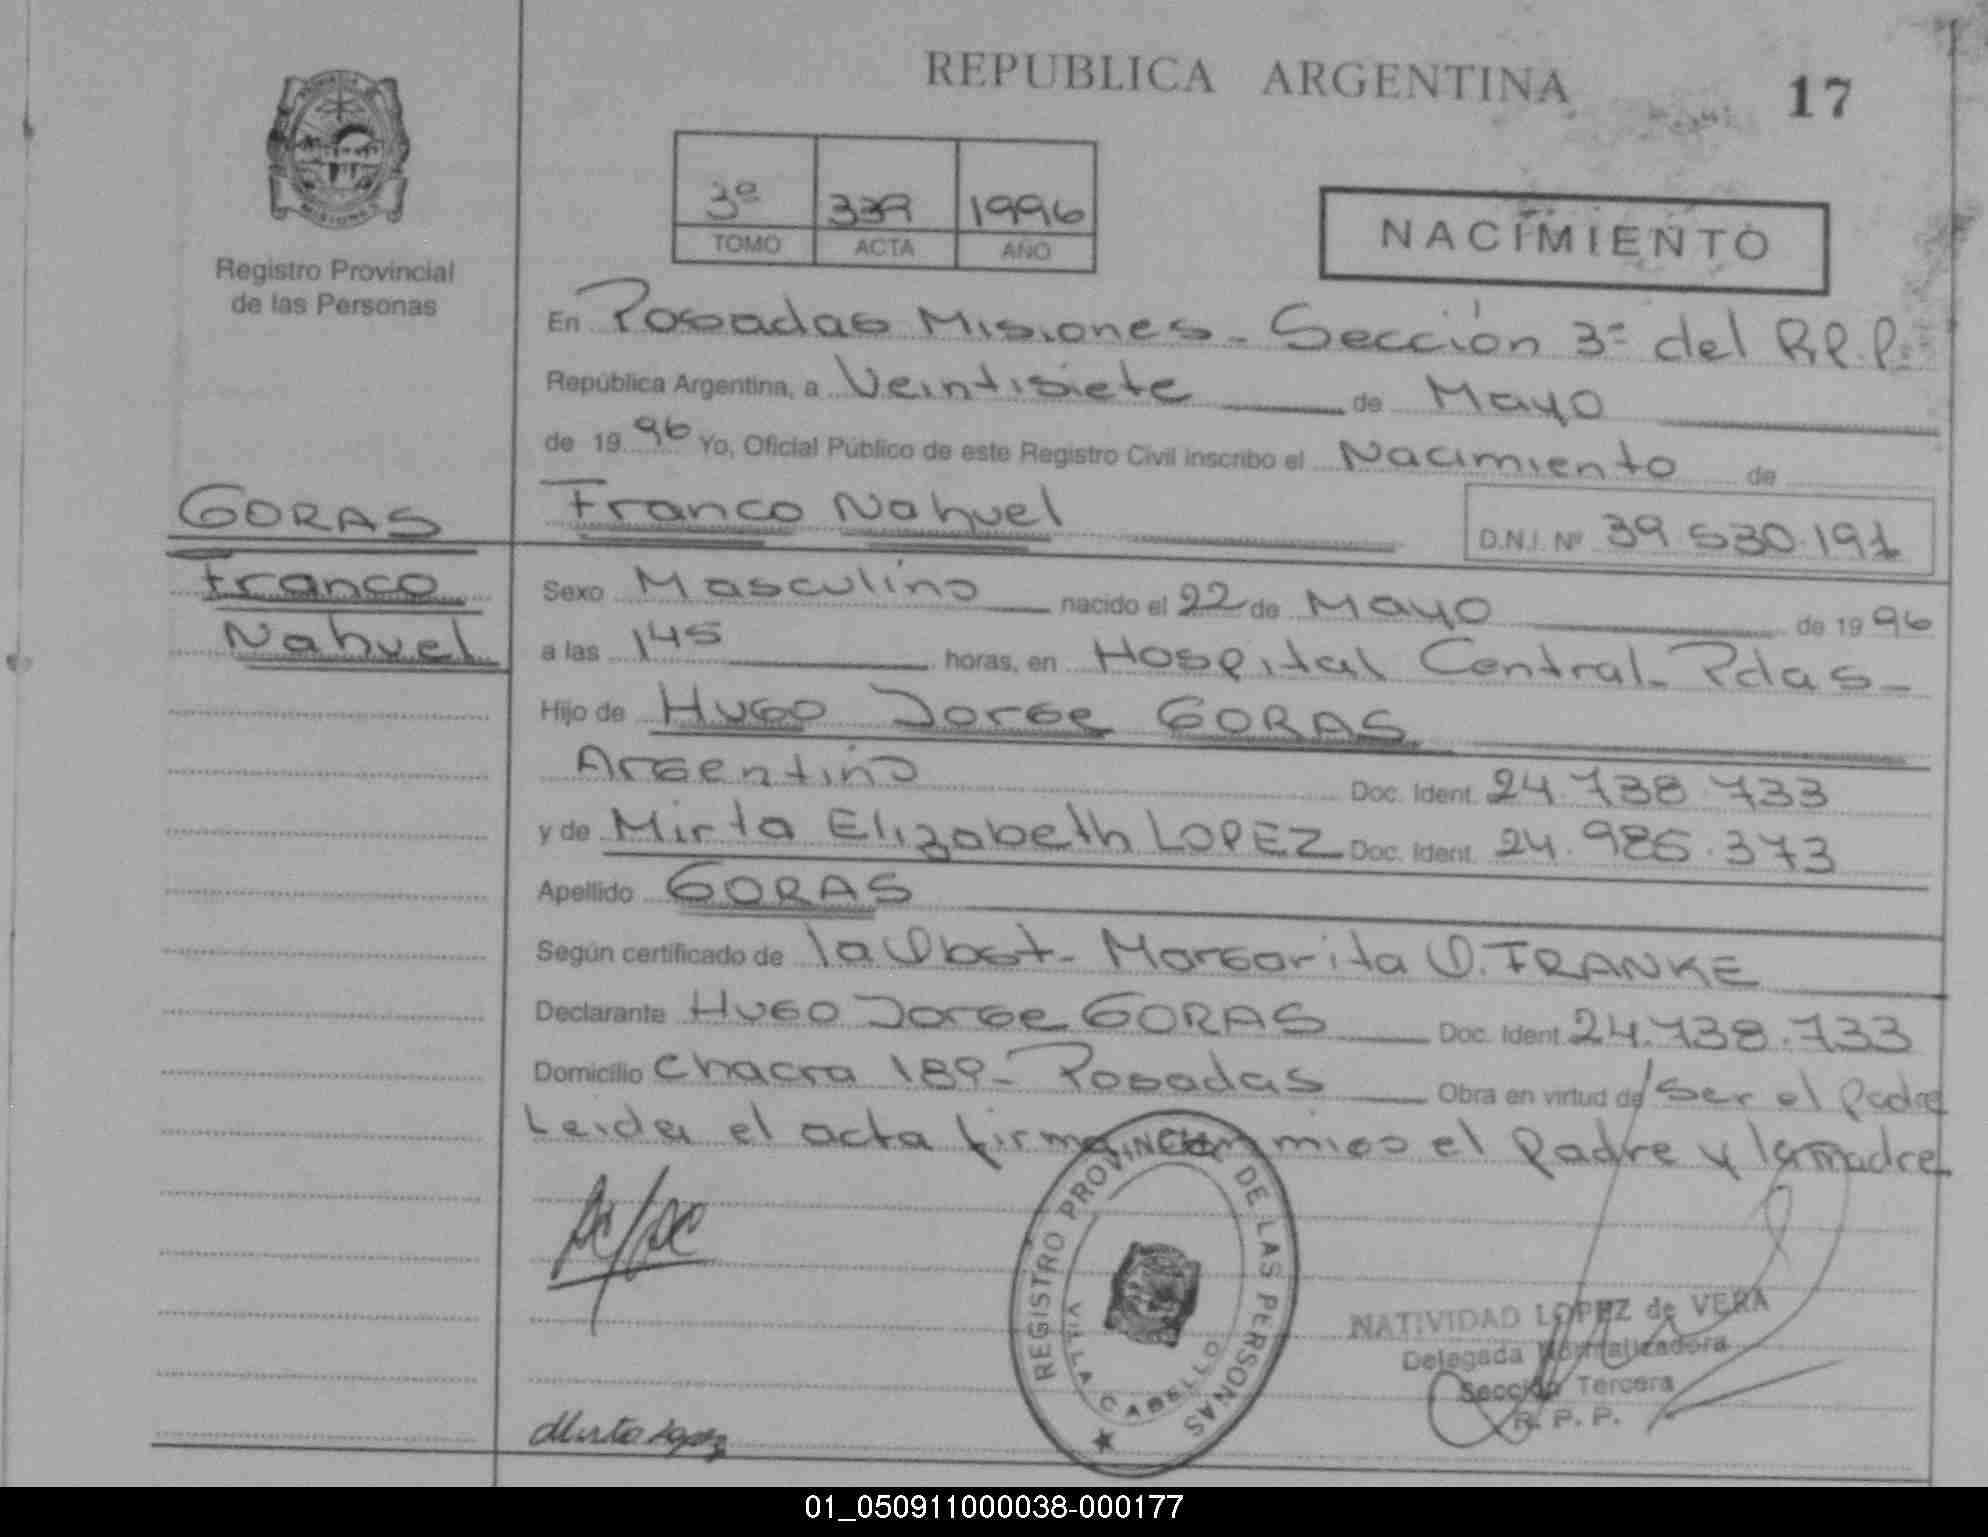 REPUBLICA ARGENTINA
17
MISIONES
Registro Provincial
de las Personas
3º 339 1996
TOMO ACTA AÑO
NACIMIENTO
En Posadas Misiones - Sección 3ª del R.P.P.
República Argentina, a Veintisiete de Mayo
de 1996 Yo, Oficial Público de este Registro Civil inscribo el Nacimiento de
GORAS
Franco Nahuel
D.N.I. Nº 39.530.191
Franco
Nahuel
Sexo Masculino nacido el 22 de Mayo de 1996
a las 145 horas, en Hospital Central - Pdas -
Hijo de Hugo Jorge GORAS
Argentino Doc. Ident. 24.738.733
y de Mirta Elizabeth LOPEZ Doc. Ident. 24.986.373
Apellido GORAS
Según certificado de la Obst - Margarita O. FRANKE
Declarante Hugo Jorge GORAS Doc. Ident. 24.738.733
Domicilio Chacra 189 - Posadas Obra en virtud de ser el padre
Leida el acta firman el padre y la madre
REGISTRO PROVINCIAL DE LAS PERSONAS
VILLA CABELLO
NATIVIDAD LOPEZ de VERA
Delegada Normalizadora
Sección Tercera
R. P. P.
Mirta Lopez
01_050911000038-000177